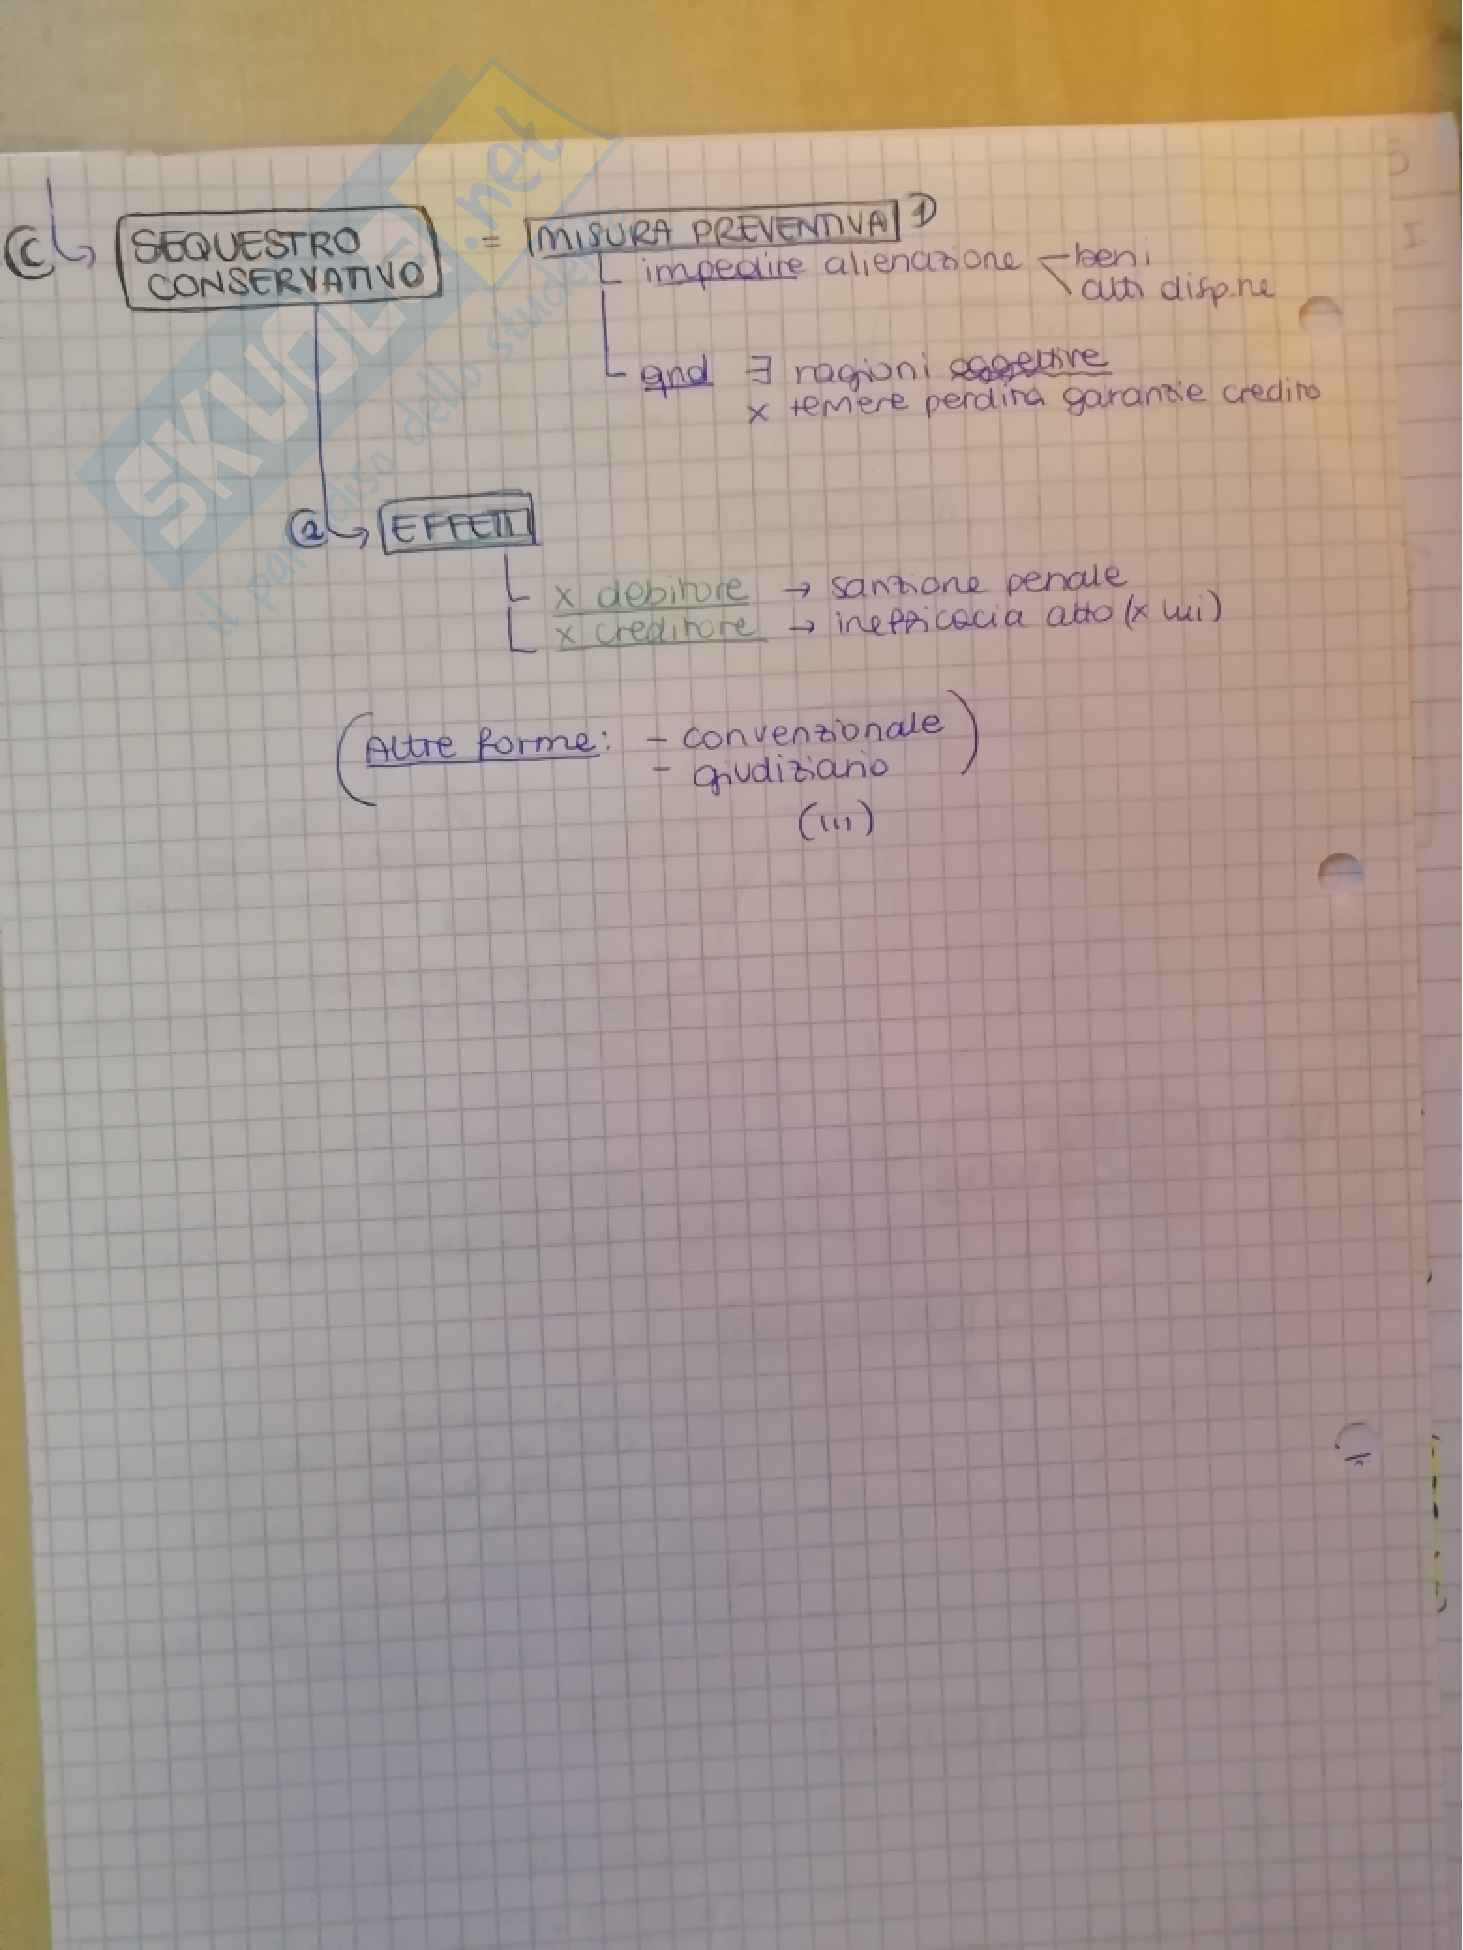 C SEQUESTRO CONSERVATIVO = MISURA PREVENTIVA 1
impedire alienazione beni
atti disp.ne
qnd ∃ ragioni oggettive
x temere perdita garanzie credito
2 EFFETTI
x debitore → sanzione penale
x creditore → inefficacia atto (x lui)
(Altre forme: - convenzionale
- giudiziario)
(...)
SKUOLA.net
il paradiso dello studente